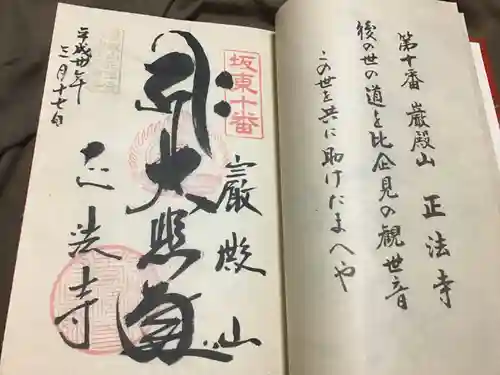 第十番 巖殿山 正法寺
後の世の道を比企見の観世音
この世を共に助けたまへや
坂東十番
巖殿山
大悲殿
正法寺
平成卅年
三月十七日